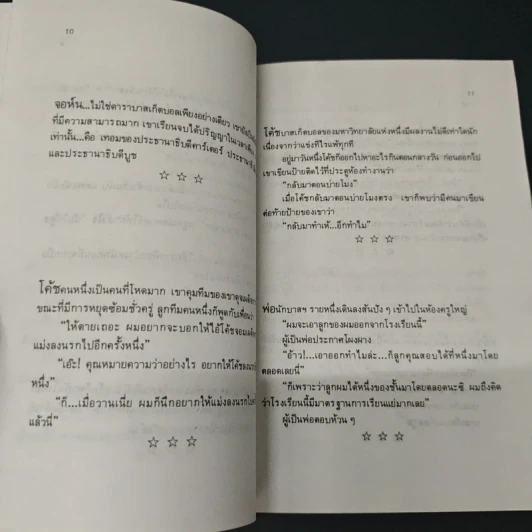 10
จอห์น...ไม่ใช่ดาราบาสเก็ตบอลเพียงอย่างเดียว เขายังเป็น
ที่มีความสามารถมาก เขาเรียนจบได้ปริญญาในเวลา
เท่านั้น...คือ เทอมของประธานาธิบดีคาร์เตอร์ ประธานาธิบดี
และประธานาธิบดีบูช
☆ ☆ ☆
โค้ชคนหนึ่งเป็นคนที่โหดมาก เขาคุมทีมของเขาดุจ
ขณะที่มีการหยุดซ้อมชั่วครู่ ลูกทีมคนหนึ่งก็พูดกับเพื่อนว่า
"ให้ตายเถอะ ผมอยากจะบอกให้ไอ้โค้ชจอม
แม่งลงนรกไปอีกครั้งหนึ่ง"
"เอ๊ะ! คุณหมายความว่าอย่างไร อยากให้โค้ชลงนรก
หนึ่ง"
"ก็...เมื่อวานเนี่ย ผมก็นึกอยากให้แม่งลงนรกไป
แล้วนี่"
☆ ☆ ☆
11
โค้ชบาสเก็ตบอลของมหาวิทยาลัยแห่งหนึ่งมีผลงานไม่ดีเท่าใดนัก
เนื่องจากว่าแข่งทีไรแพ้ทุกที
อยู่มาวันหนึ่งโค้ชก็ออกไปหาอะไรกินตอนกลางวัน ก่อนออกไป
เขาเขียนป้ายติดไว้ที่ประตูห้องทำงานว่า
"กลับมาตอนบ่ายโมง"
เมื่อโค้ชกลับมาตอนบ่ายโมงตรง เขาก็พบว่ามีคนมาเขียน
ต่อท้ายป้ายของเขาว่า
"กลับมาทำเห้...อีกทำไม"
☆ ☆ ☆
พ่อนักบาสฯ รายหนึ่งเดินลงส้นปัง ๆ เข้าไปในห้องครูใหญ่
"ผมจะเอาลูกของผมออกจากโรงเรียนนี้"
ผู้เป็นพ่อประกาศโผงผาง
"อ้าว!...เอาออกทำไมล่ะ...ก็ลูกคุณสอบได้ที่หนึ่งมาโดย
ตลอดเลยนี่"
"ก็เพราะว่าลูกผมได้หนึ่งของชั้นมาโดยตลอดนะซิ ผมถึงคิด
ว่าโรงเรียนนี้มีมาตรฐานการเรียนแย่มากเลย"
ผู้เป็นพ่อตอบห้วน ๆ
☆ ☆ ☆